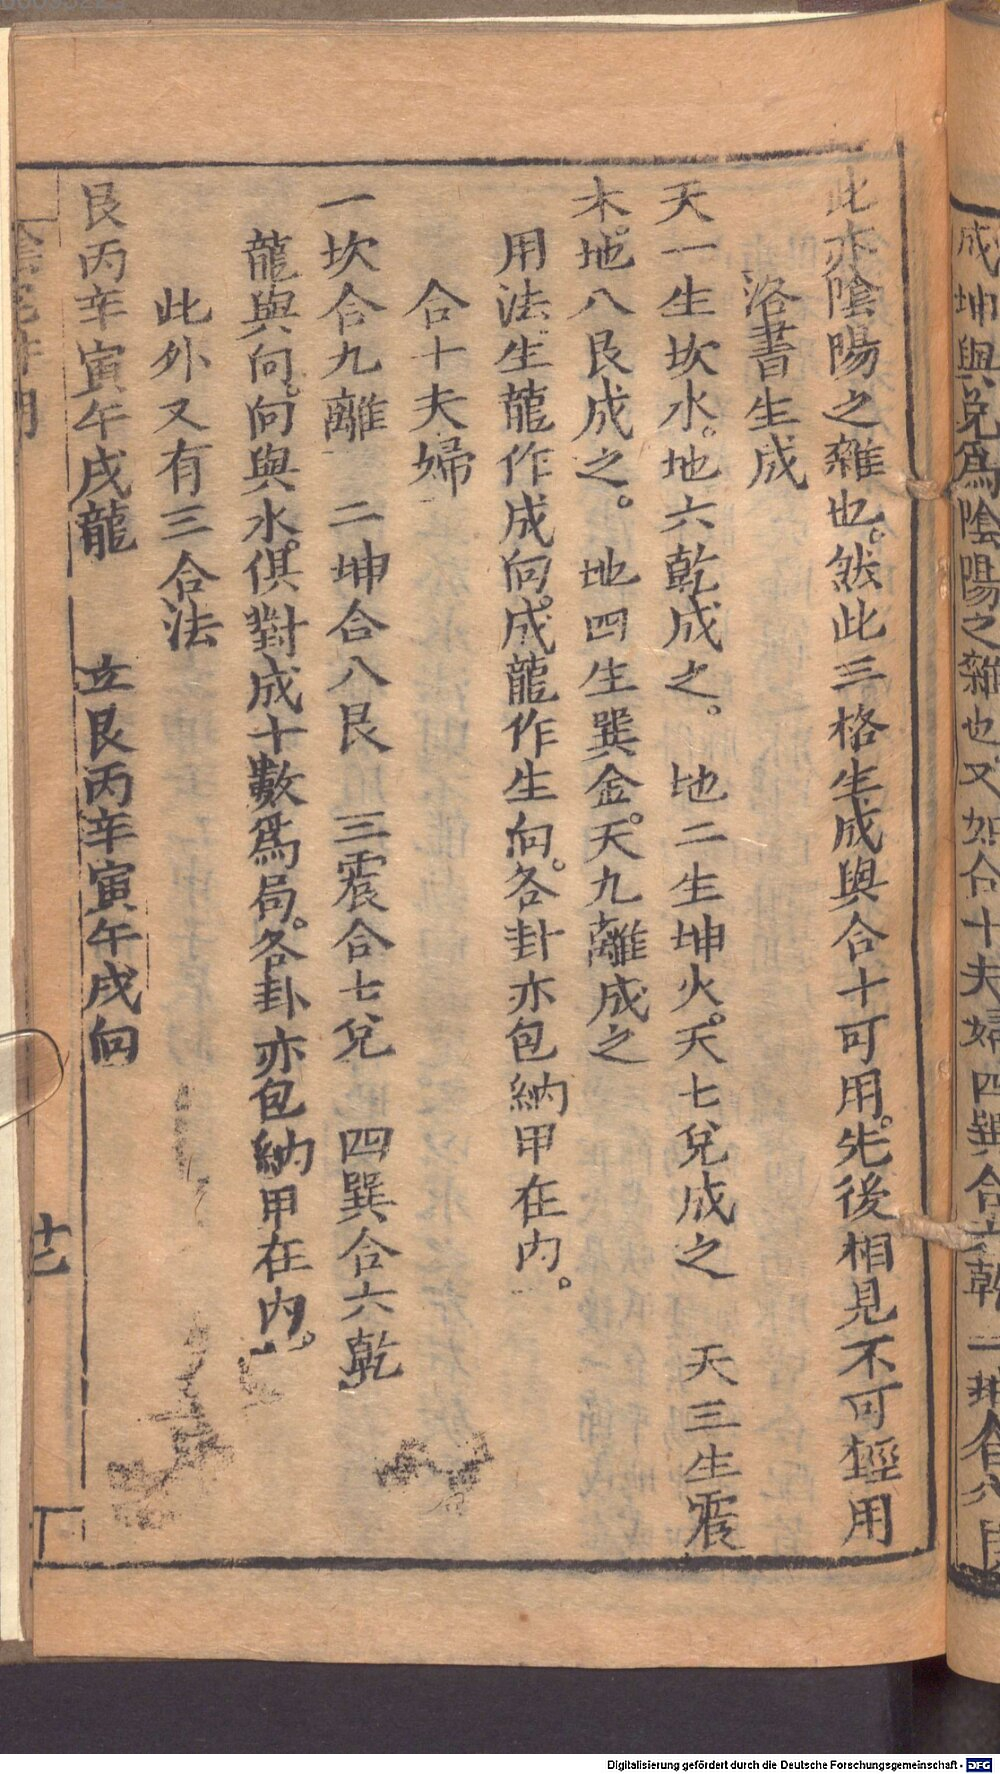 成坤與兌爲陰陽之雜也又如合十夫婦四巽合六乾二坤合八艮
此亦陰陽之雜也。然此三格生成與合十可用。先後相見不可輕用
洛書生成
天一生坎水。地六乾成之。 地二生坤火。天七兌成之 天三生震
木。地八艮成之。 地四生巽金。天九離成之
用法生龍作成向。成龍作生向。各卦亦包納甲在内。
合十夫婦
一坎合九離 二坤合八艮 三震合七兌 四巽合六乾
龍與向。向與水。俱對成十數爲局。各卦亦包納甲在内。
此外又有三合法
艮丙辛寅午戌龍 立艮丙辛寅午戌向
Digitalisierung gefördert durch die Deutsche Forschungsgemeinschaft - DFG